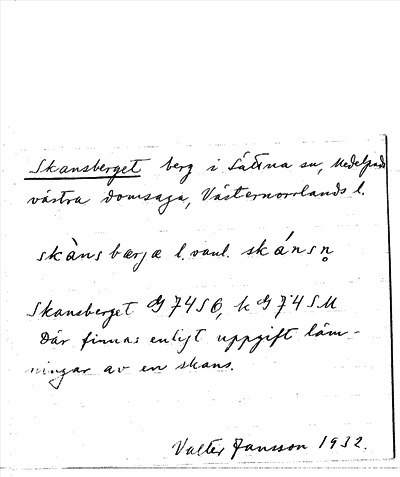 Skansberget berg i Sättna sn, Medelpads
västra domsaga, Västernorrlands l.
skàns bærjæ l. vanl. skánsn̥
Skansberget G 74 S Ö, k G 74 S M
Där finnas enligt uppgift läm-
ningar av en skans.
Valter Jansson 1932.